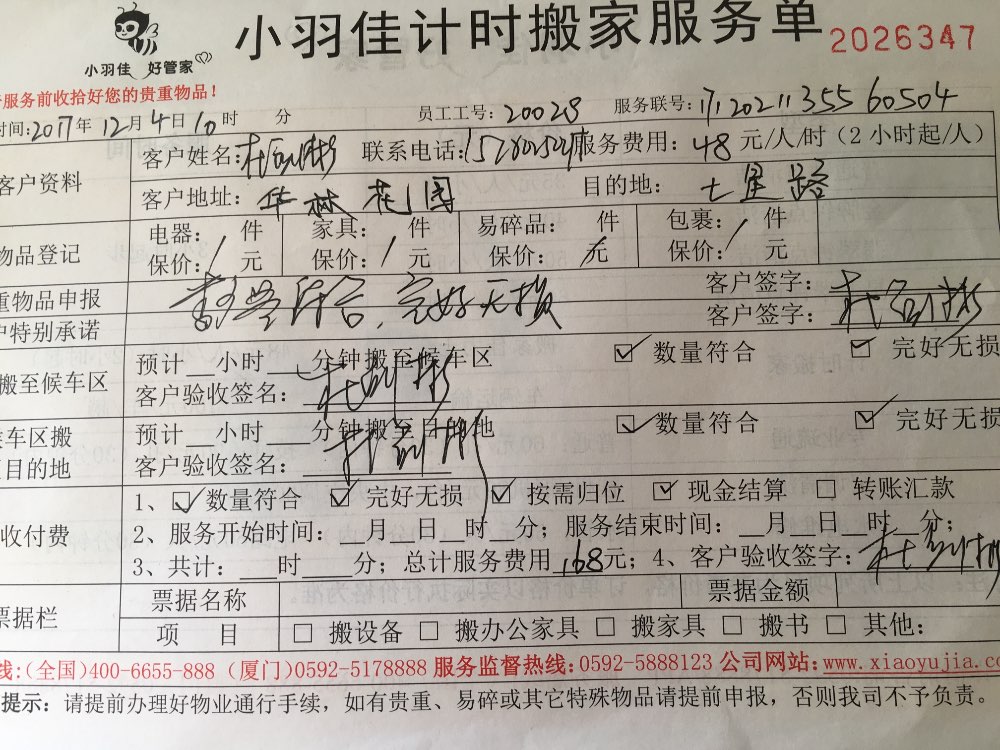 小羽佳 好管家
小羽佳计时搬家服务单 2026347
服务前收拾好您的贵重物品！
时间:2017年12月4日10时 分 员工工号: 20028 服务联号: 1712021135560504
客户资料 客户姓名: 联系电话: 服务费用: 48元/人/时（2小时起/人）
客户地址: 华林花园 目的地: 七星路
物品登记 电器: 件 家具: 件 易碎品: 件 包裹: 件
保价: / 元 保价: / 元 保价: 元 保价: / 元
重物品申报 数量符合，完好无损 客户签字:
户特别承诺 客户签字:
搬至候车区 预计__小时__分钟搬至候车区 ☑ 数量符合 ☑ 完好无损
客户验收签名:
候车区搬 预计__小时__分钟搬至目的地 ☑ 数量符合 ☑ 完好无损
目的地 客户验收签名:
收付费 1、☑ 数量符合 ☑ 完好无损 ☑ 按需归位 ☑ 现金结算 □ 转账汇款
2、服务开始时间: __月__日__时__分；服务结束时间: __月__日__时__分；
3、共计: __时__分；总计服务费用168元；4、客户验收签字:
票据栏 票据名称 票据金额
项 目 □ 搬设备 □ 搬办公家具 □ 搬家具 □ 搬书 □ 其他:
线:(全国)400-6655-888 (厦门)0592-5178888 服务监督热线:0592-5888123 公司网站:www.xiaoyujia.co
提示: 请提前办理好物业通行手续，如有贵重、易碎或其它特殊物品请提前申报，否则我司不予负责。